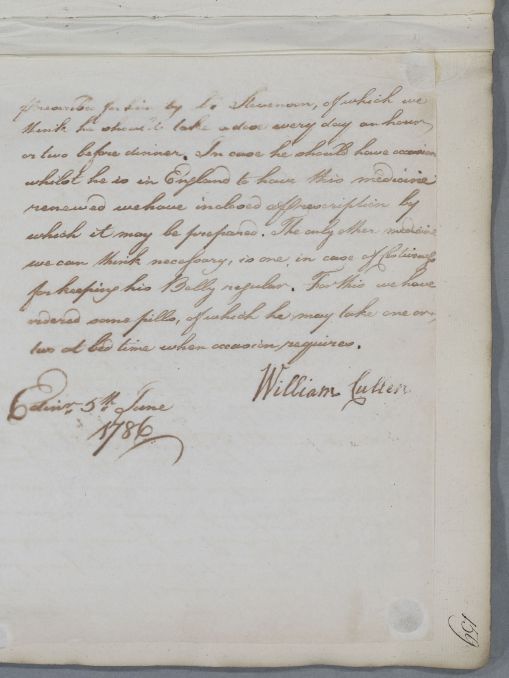 for him by Dr Stevenson, of which we
think he should take a dose every day an hour
or two before dinner. In case he should have occasion
whilst he is in England to have this medicine
renewed we have inclosed a Prescription by
which it may be prepared. The only other medicine
we can think necessary, is one, in case of Costiveness
for keeping his Belly regular. For this we have
ordered some pills, of which he may take one or
two at bed time when occasion requires.
William Cullen
Edinr. 5th. June
1786